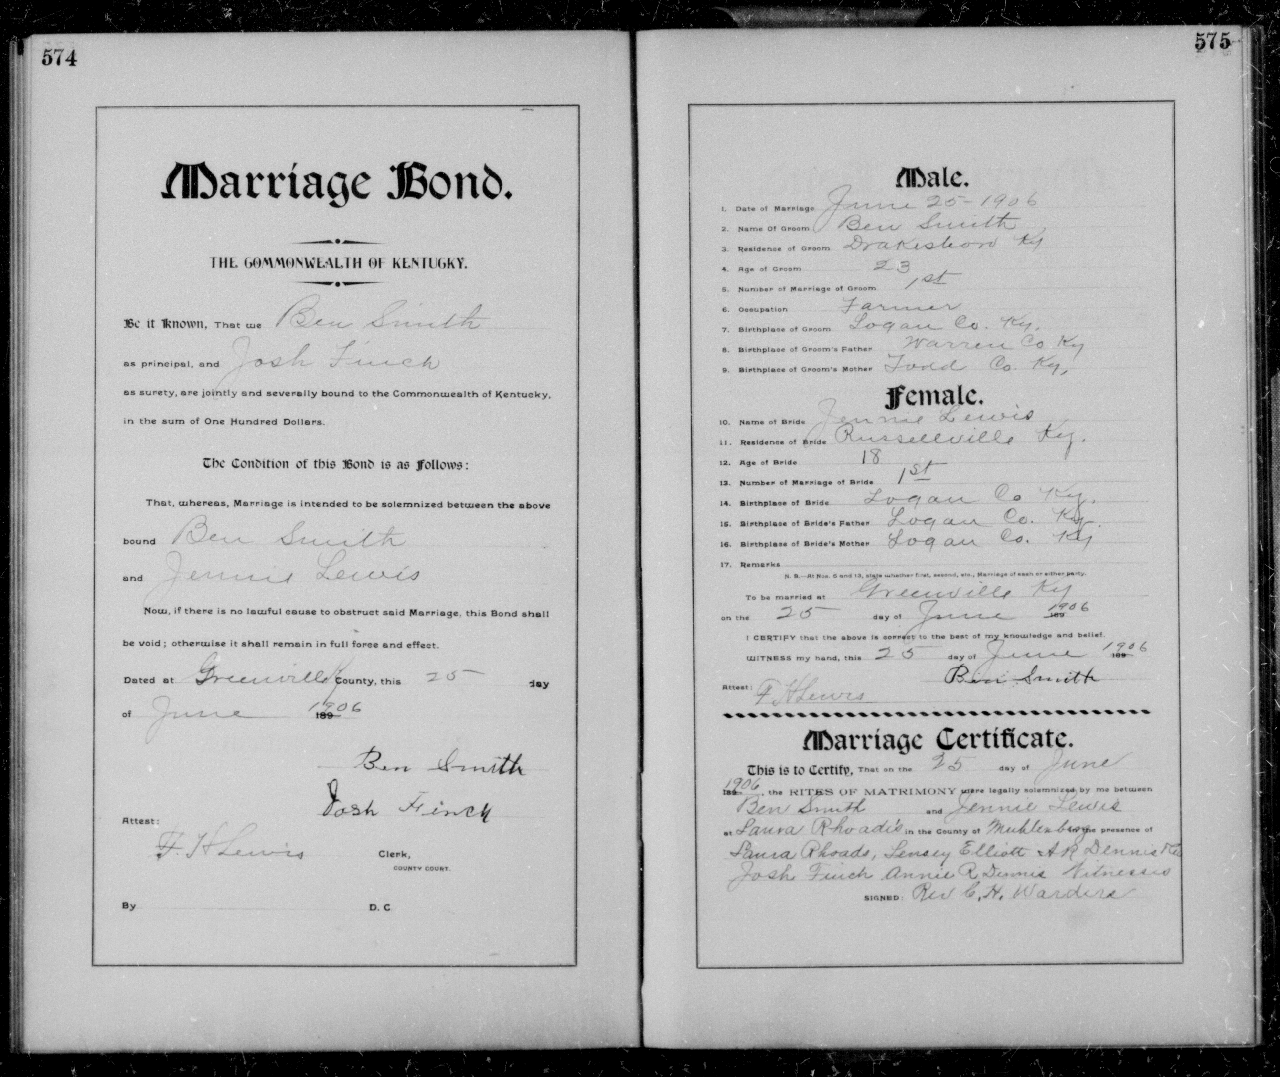 574
Marriage Bond.
THE COMMONWEALTH OF KENTUCKY.
Be it Known, That we Ben Smith
as principal, and Josh Finch
as surety, are jointly and severally bound to the Commonwealth of Kentucky,
in the sum of One Hundred Dollars.
The Condition of this Bond is as Follows:
That, whereas, Marriage is intended to be solemnized between the above
bound Ben Smith
and Jennie Lewis
Now, if there is no lawful cause to obstruct said Marriage, this Bond shall
be void; otherwise it shall remain in full force and effect.
Dated at Greenville Ky County, this 25 day
of June 1906 189
Ben Smith
Josh Finch
Attest:
F. H Lewis Clerk,
COUNTY COURT.
By D. C
575
Male.
1. Date of Marriage June 25-1906
2. Name Of Groom Ben Smith
3. Residence of Groom Drakesboro Ky
4. Age of Groom 23
5. Number of Marriage of Groom 1st
6. Occupation Farmer
7. Birthplace of Groom Logan Co. Ky.
8. Birthplace of Groom's Father Warren Co Ky
9. Birthplace of Groom's Mother Todd Co. Ky,
Female.
10. Name of Bride Jennie Lewis
11. Residence of Bride Russellville Ky.
12. Age of Bride 18
13. Number of Marriage of Bride 1st
14. Birthplace of Bride Logan Co Ky.
15. Birthplace of Bride's Father Logan Co. Ky.
16. Birthplace of Bride's Mother Logan Co. Ky
17. Remarks
N. B.—At Nos. 5 and 13, state whether first, second, etc., Marriage of each or either party.
To be married at Greenville Ky
on the 25 day of June 1906 189
I CERTIFY that the above is correct to the best of my knowledge and belief.
WITNESS my hand, this 25 day of June 1906 189
Ben Smith
Attest: F H Lewis
Marriage Certificate.
This is to Certify, That on the 25 day of June
1906 189 , the RITES OF MATRIMONY were legally solemnized by me between
Ben Smith and Jennie Lewis
at Laura Rhoads in the County of Muhlenberg in the presence of
Laura Rhoads, Elliott A R Dennis
Josh Finch Annie R Dennis Witnesses
SIGNED: Rev C. H. Warders